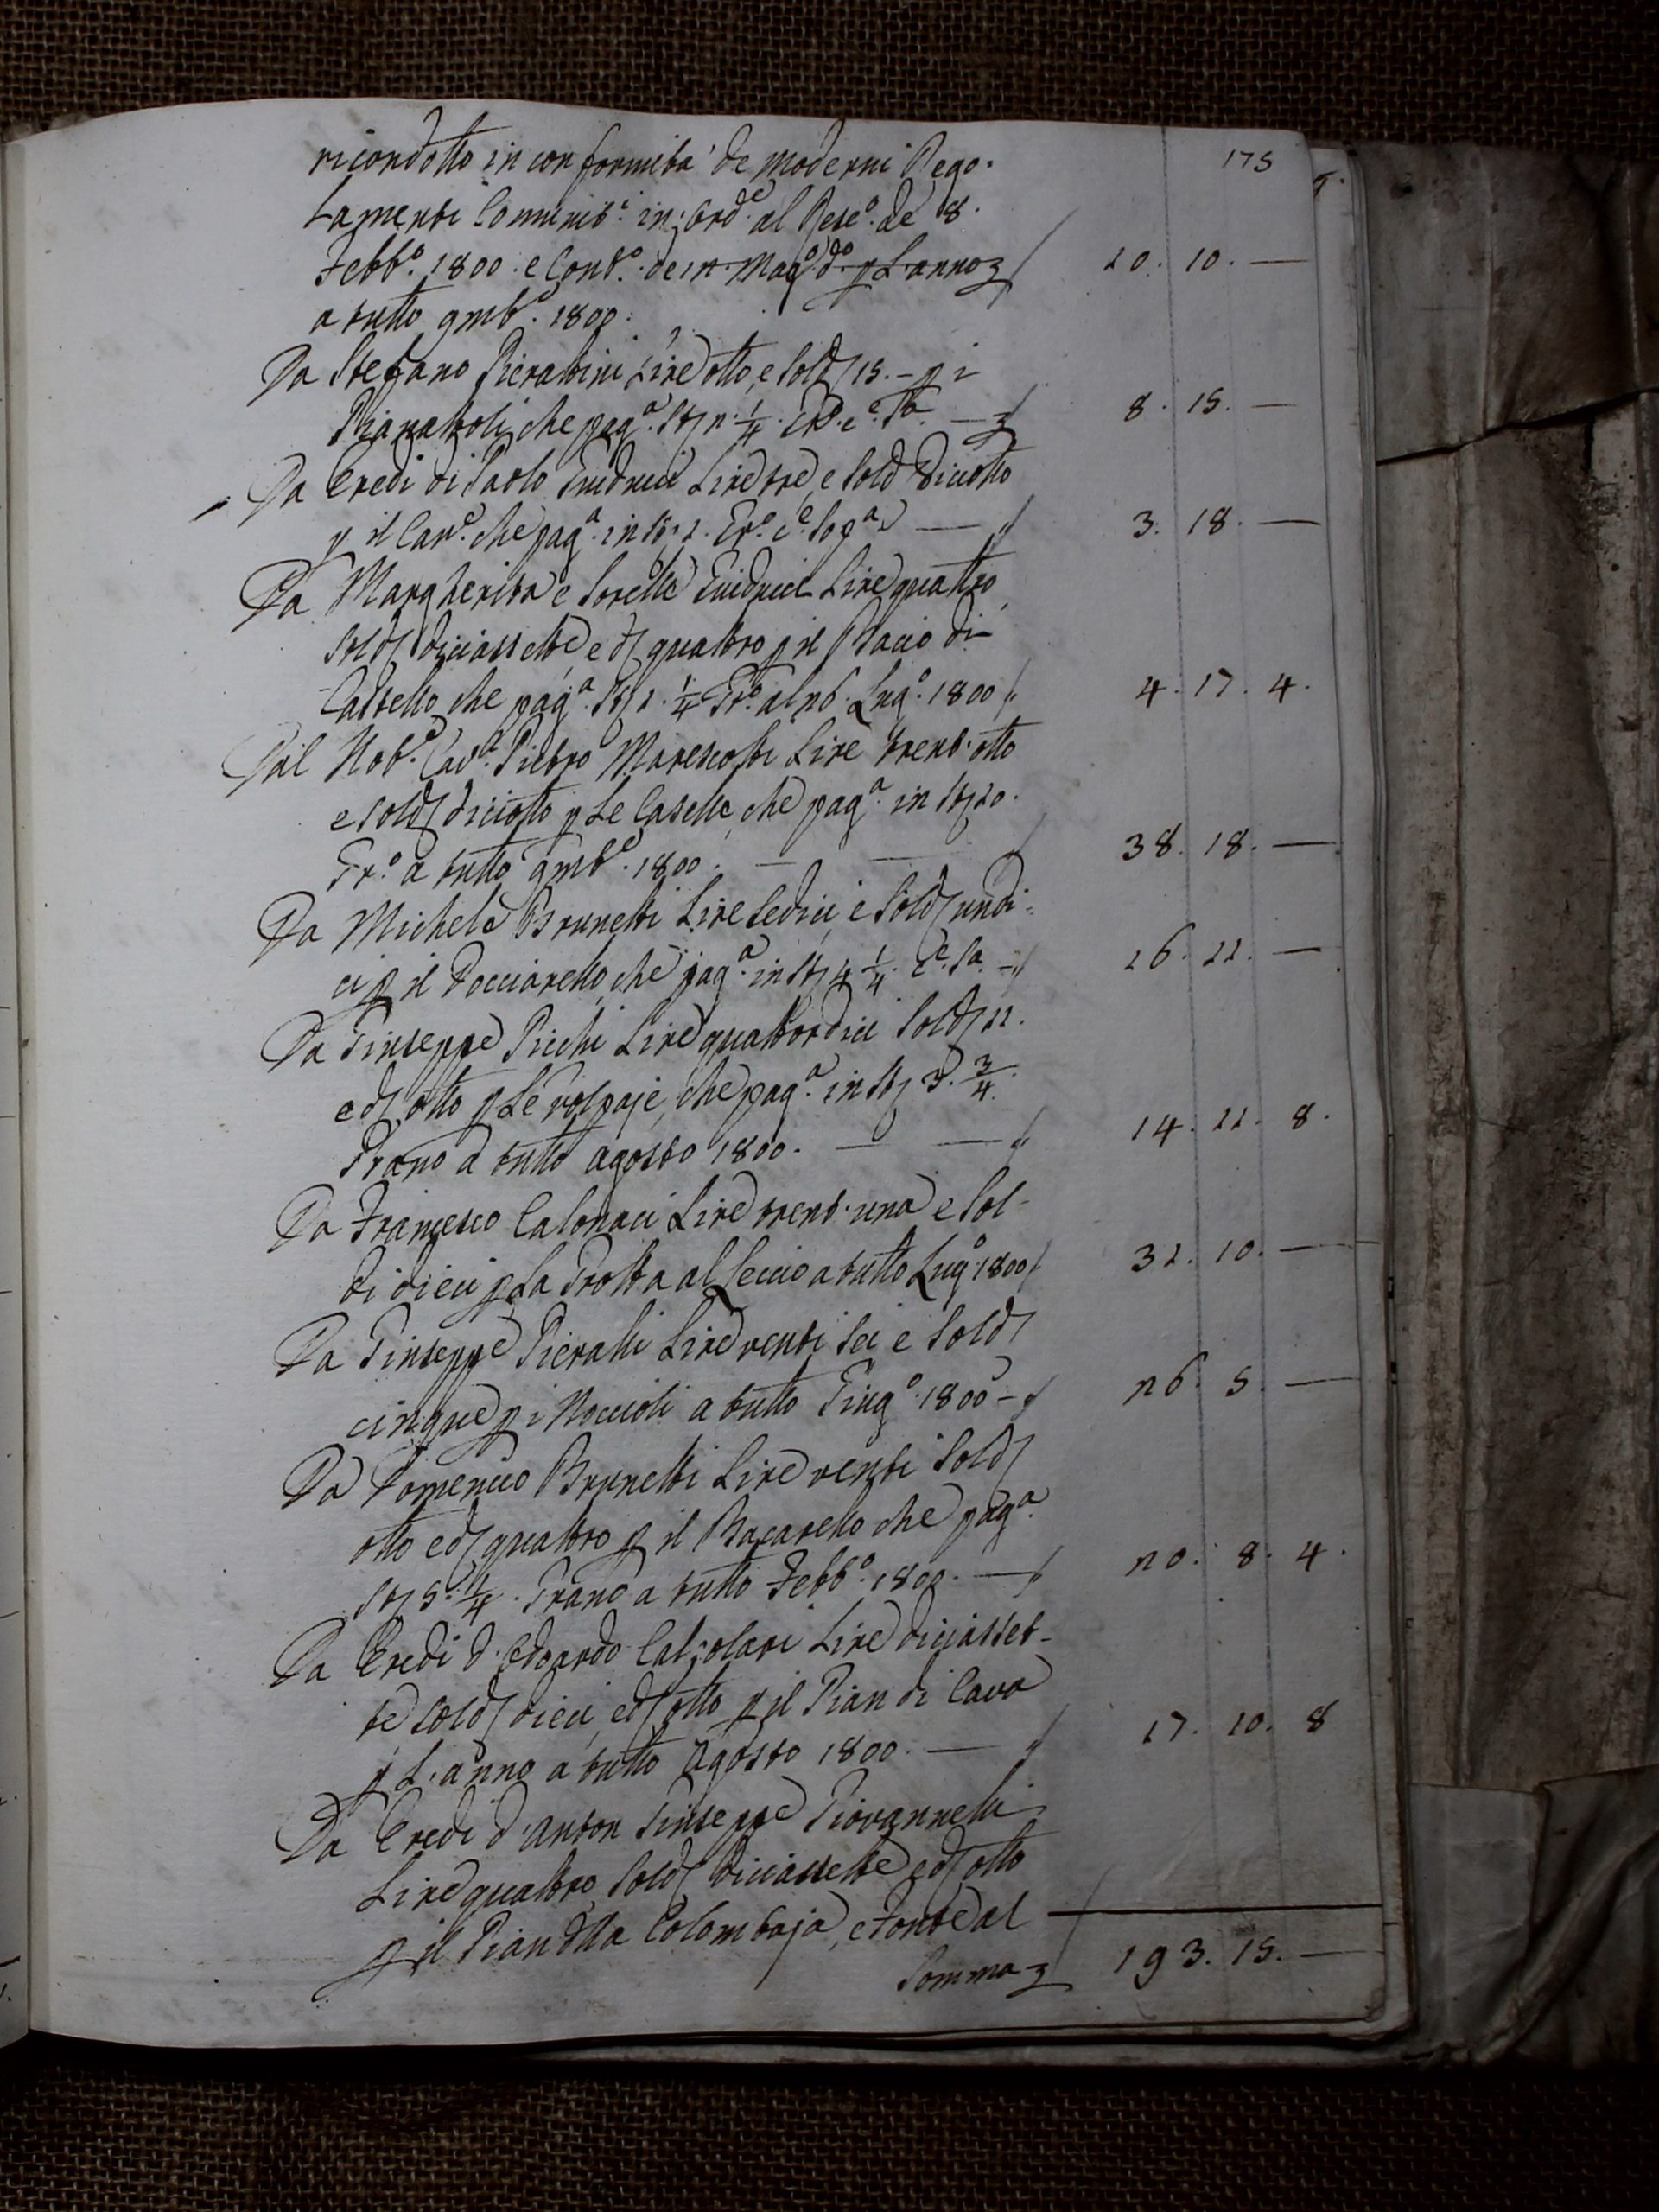 175
ricondotto in conformità de moderni Rego=
Lamenti Comunit.i in ord.e al Resc.o de 8.
Febb.o 1800. e Cont.o de 12. Mag.o d.o p L'anno
a tutto 9mb.e 1800. 10. 10. —
Da Stefano Pierattini Lire otto, e Sold 15. — p i
Pianattoli che pag.a St n. 1/4. 8. 15. —
Da Eredi di Paolo Guiducci Lire tre, e Sold Diciotto
p il Cav.o che pag.a in St 1. Gr.o c.e Sop.a — 3. 18. —
Da Margherita e Sorelle Guiducci Lire quattro
Sold diciassette e d quattro p il Bacio di
Castello che pag.a St 1. 1/4 Gr.o al n6. Lug.o 1800 4. 17. 4.
Dal Nob.e Cav.e Pietro Marescotti Lire trent'otto
e Sold diciotto p Le Caselle che pag.a in St 10.
Gr.o a tutto 9mb.e 1800. — — 38. 18. —
Da Michele Brunetti Lire Sedici e Sold undi=
ci p il Docciarello che pag.a in St 4 1/4. c.e Sa. — 16. 11. —
Da Giuseppe Picchi Lire quattordici Sold 11.
e d otto p Le Volpaje, che pag.a in St 3. 3/4.
Grano a tutto agosto 1800. — — 14. 11. 8.
Da Francesco Calonaci Lire trent'una e Sol=
di dieci p La Grotta al Leccio a tutto Lug.o 1800 31. 10. —
Da Giuseppe Pieralli Lire venti sei e Sold
cinque p i Noccioli a tutto Giug.o 1800 — n6. 5. —
Da Domenico Brunetti Lire venti Sold
otto e d quattro p il Bacarello che pag.a
St 5. 1/4. Grano a tutto Febb.o 1800. — n0. 8. 4.
Da Eredi d'Edoardo Calzolari Lire diciasset=
te Sold dieci, e d otto p il Pian di Cava
p L'anno a tutto Agosto 1800. — 17. 10. 8
Da Eredi d'Anton Giuseppe Giovannelli
Lire quattro Sold diciassette e d otto
p il Pian della Colombaja, e Fonte al
Somma 193. 15. —